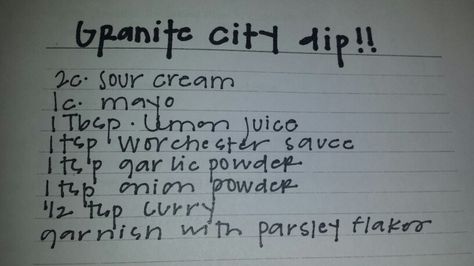 Granite City dip!!
2c. sour cream
1c. mayo
1 Tbsp. Lemon juice
1 tsp Worchester sauce
1 tsp garlic powder
1 tsp onion powder
1/2 tsp curry
garnish with parsley flakes